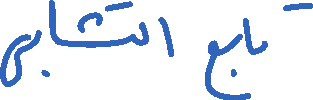 تابع التشابي